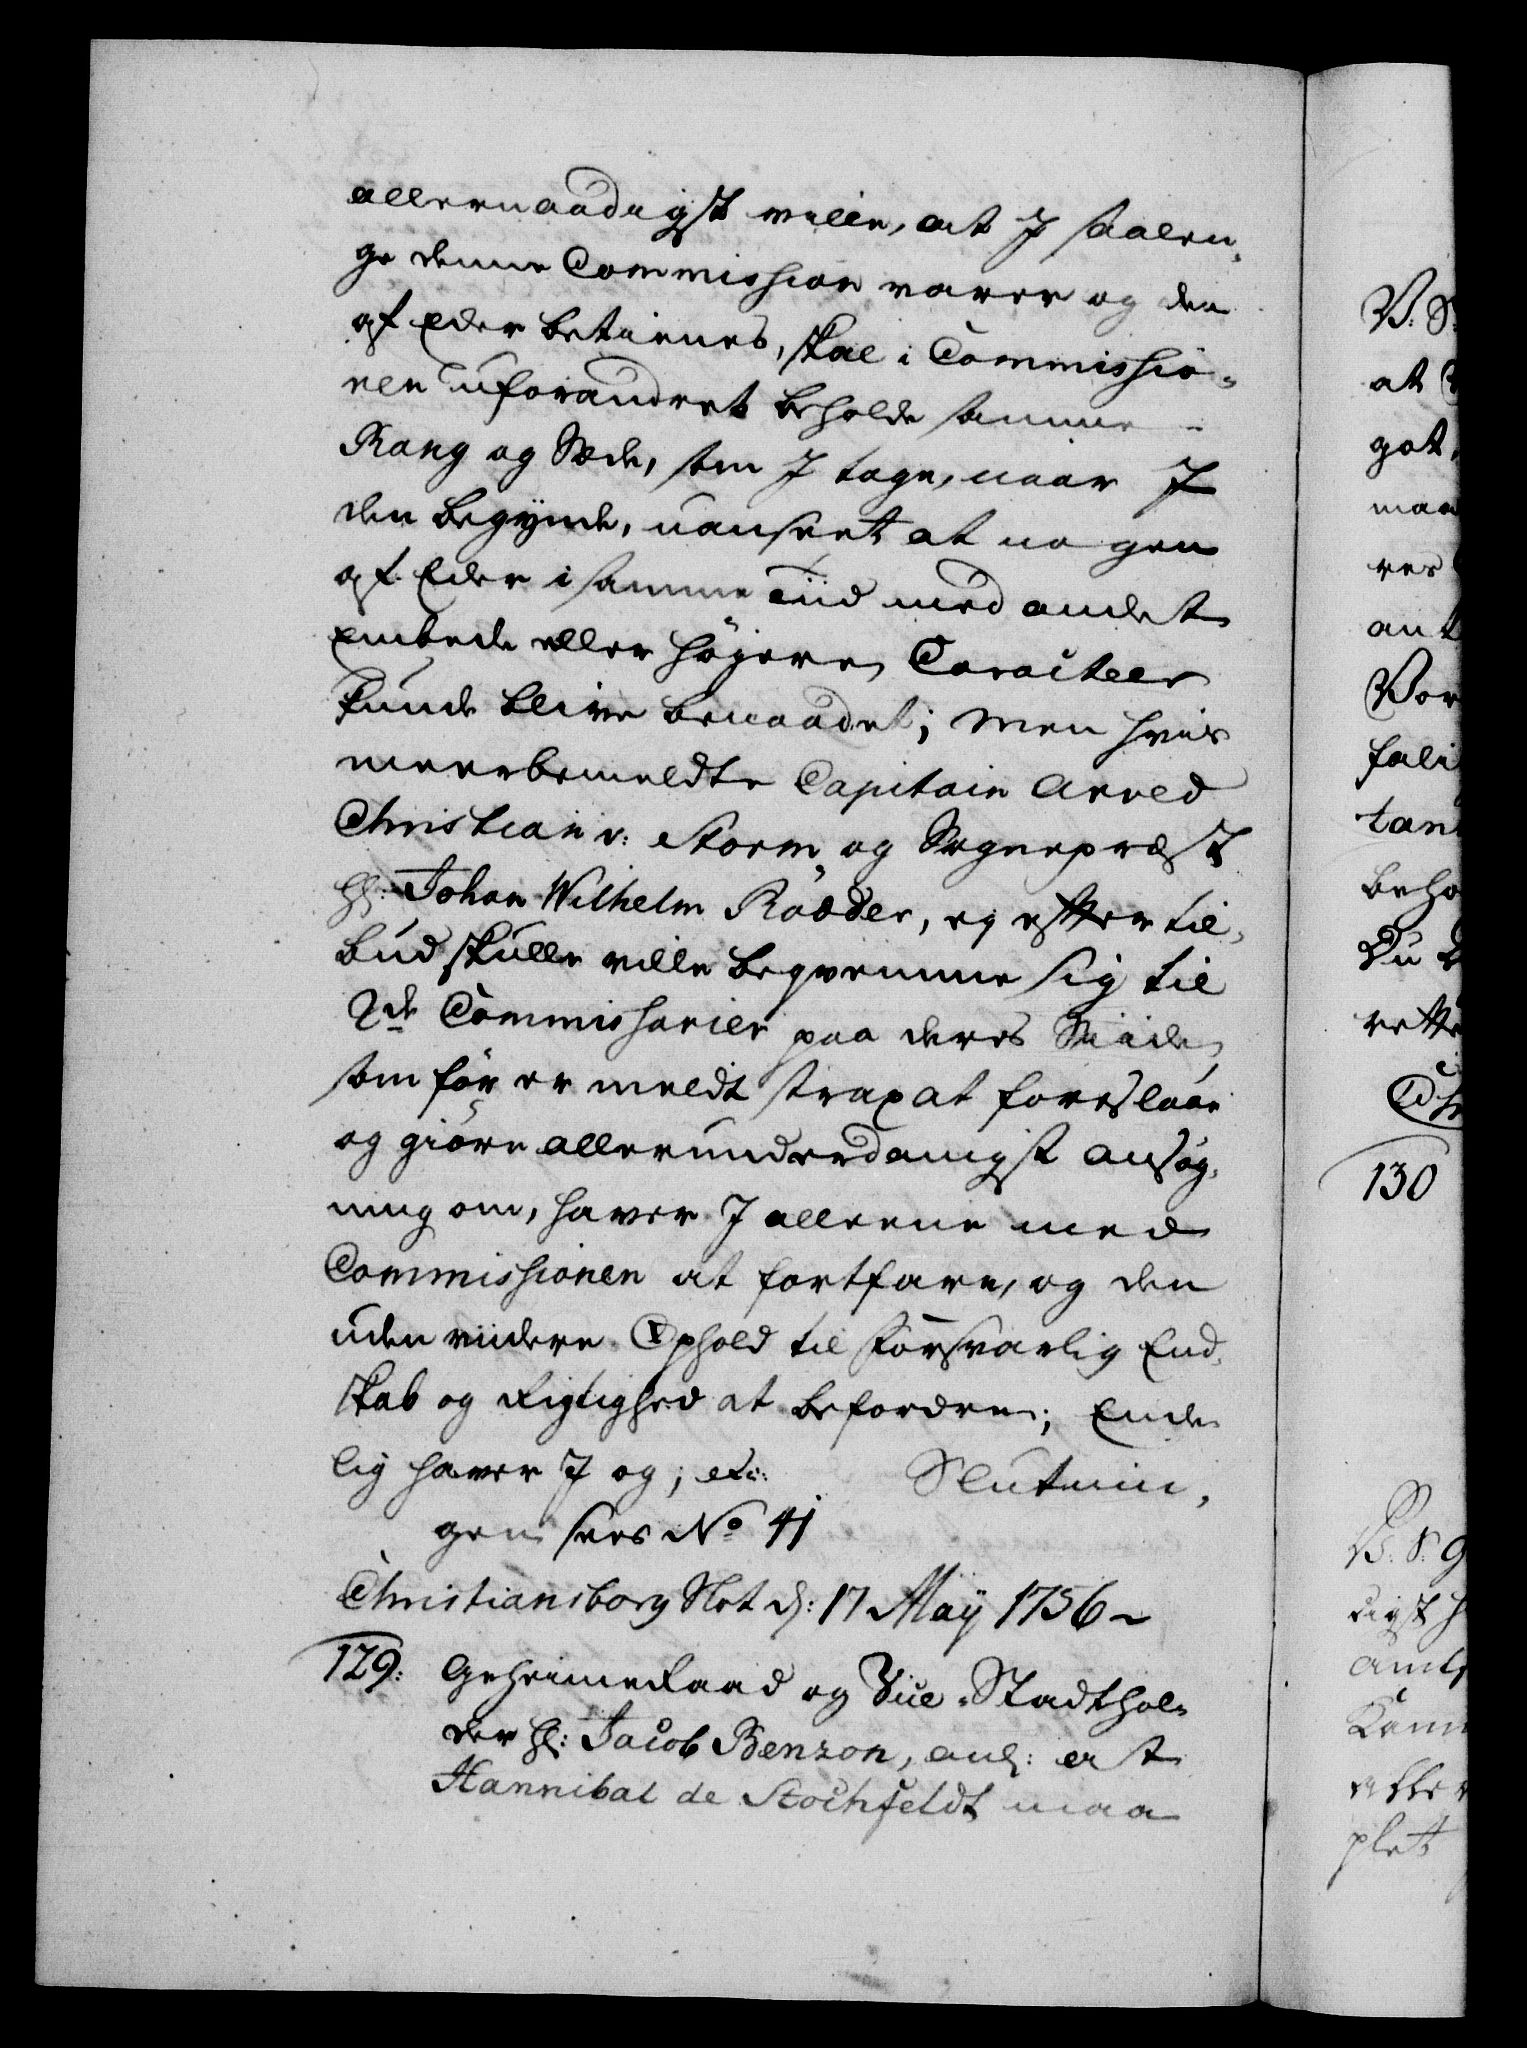 allernaadigst ville, at I saalen-
ge denne Commission varer og den
af Eder betienes, skal i Commissio-
nen uforandret beholde samme
Rang og Sæde, som I toge, naar I
den begynde, uanseet at nogen
af Eder i samme Tiid med andet
Embede eller høyere Caracteer
kunde blive benaadet; Men hvis
meerbemeldte Capitain Arved
Christian v: Storm og Sognepræst
Hr: Johan Wilhelm Rödder, ej efter til-
bud skulle ville beqvemme sig til
2de Commissarier paa deres Side,
som før er meldt strax at foreslaae
og giøre allerunderdanigst Ansøg-
ning om, haver I alleene med
Commissionen at fortfare, og den
uden viidere Ophold til forsvarlig End-
skab og Rigtighed at befordre; Ende-
lig haver I og; etc: Slutnin-
gen sees No 41
Christiansborg Slot d: 17 May 1756
129: Geheimeraad og Vice-Stadthol-
der Hr: Jacob Benzon, anl: at
Hannibal de Stochfeldt maa
V: S:
at
got
maa
res
ant
Vor
fali
tan
beho
Du
rette
Chr
130
V: S: G
digst h
amts
Kam
plet